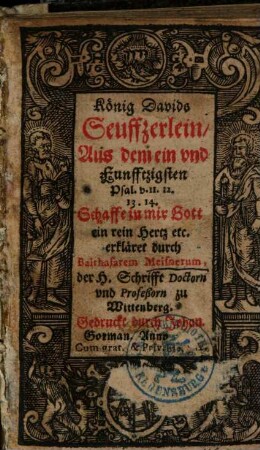 König Davids
Seuffzerlein/
Aus dem ein vnd
Funfftzigsten
Psal. v. 11. 12.
13. 14.
Schaffe zu mir Gott
ein rein Hertz etc.
erkläret durch
Balthasarem Meisnerum,
der H. Schrifft Doctorn
vnd Profeßorn zu
Wittenberg.
Gedruckt durch Johan.
Gorman. Anno
Com grat. & Priv.
REGENSBURG